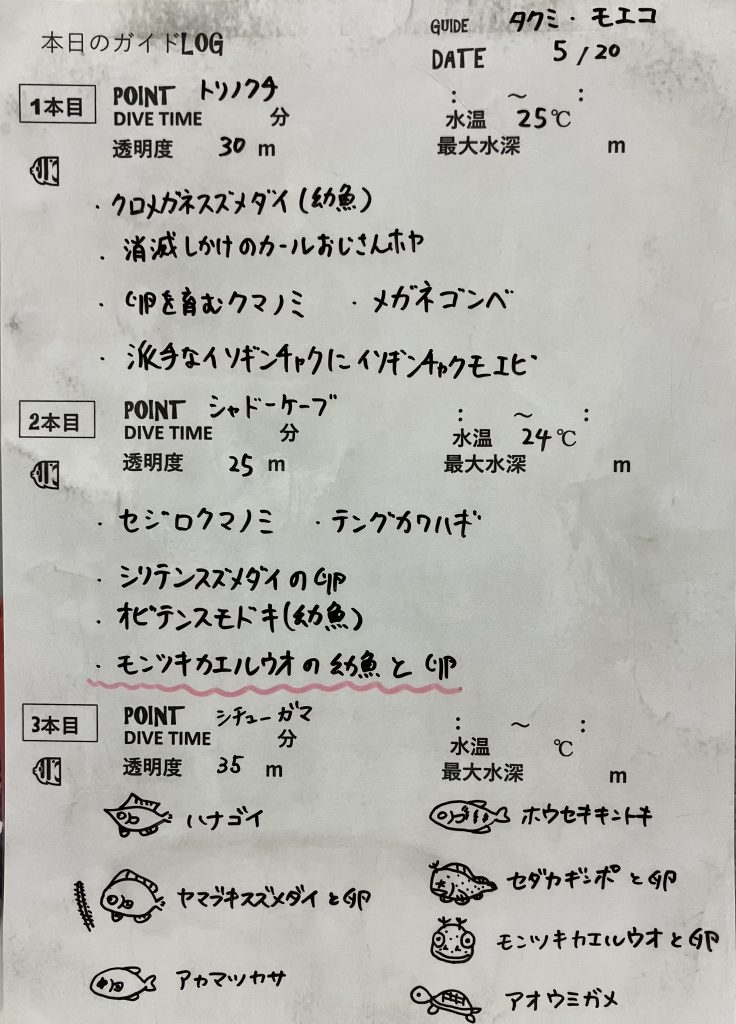 本日のガイドLOG
GUIDE タクミ・モエコ
DATE 5/20
1本目 POINT トリノクチ : ～ :
DIVE TIME 分 水温 25℃
透明度 30 m 最大水深 m
・クロメガネスズメダイ(幼魚)
・消滅しかけのカールおじさんホヤ
・卵を育むクマノミ ・メガネゴンベ
・派手なイソギンチャクにイソギンチャクモエビ
2本目 POINT シャドーケーブ : ～ :
DIVE TIME 分 水温 24℃
透明度 25 m 最大水深 m
・セジロクマノミ ・テングカワハギ
・シリテンスズメダイの卵
・オビテンスモドキ(幼魚)
・モンツキカエルウオの幼魚と卵
3本目 POINT シチューガマ : ～ :
DIVE TIME 分 水温 ℃
透明度 35 m 最大水深 m
ハナゴイ ホウセキキントキ
ヤマブキスズメダイと卵 セダカギンポと卵
モンツキカエルウオと卵
アカマツカサ アオウミガメ